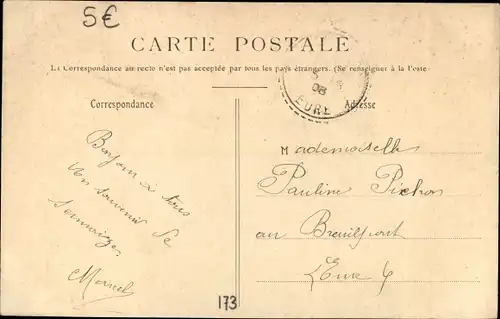 5€
CARTE POSTALE
La Correspondance au recto n'est pas acceptée par tous les pays étrangers. (Se renseigner à la Poste
08
EURE
Correspondance
Adresse
Bonjour à tous
Un souvenir de
Marcel
Mademoiselle
Pauline Pichon
au Breuilpont
Eure
173